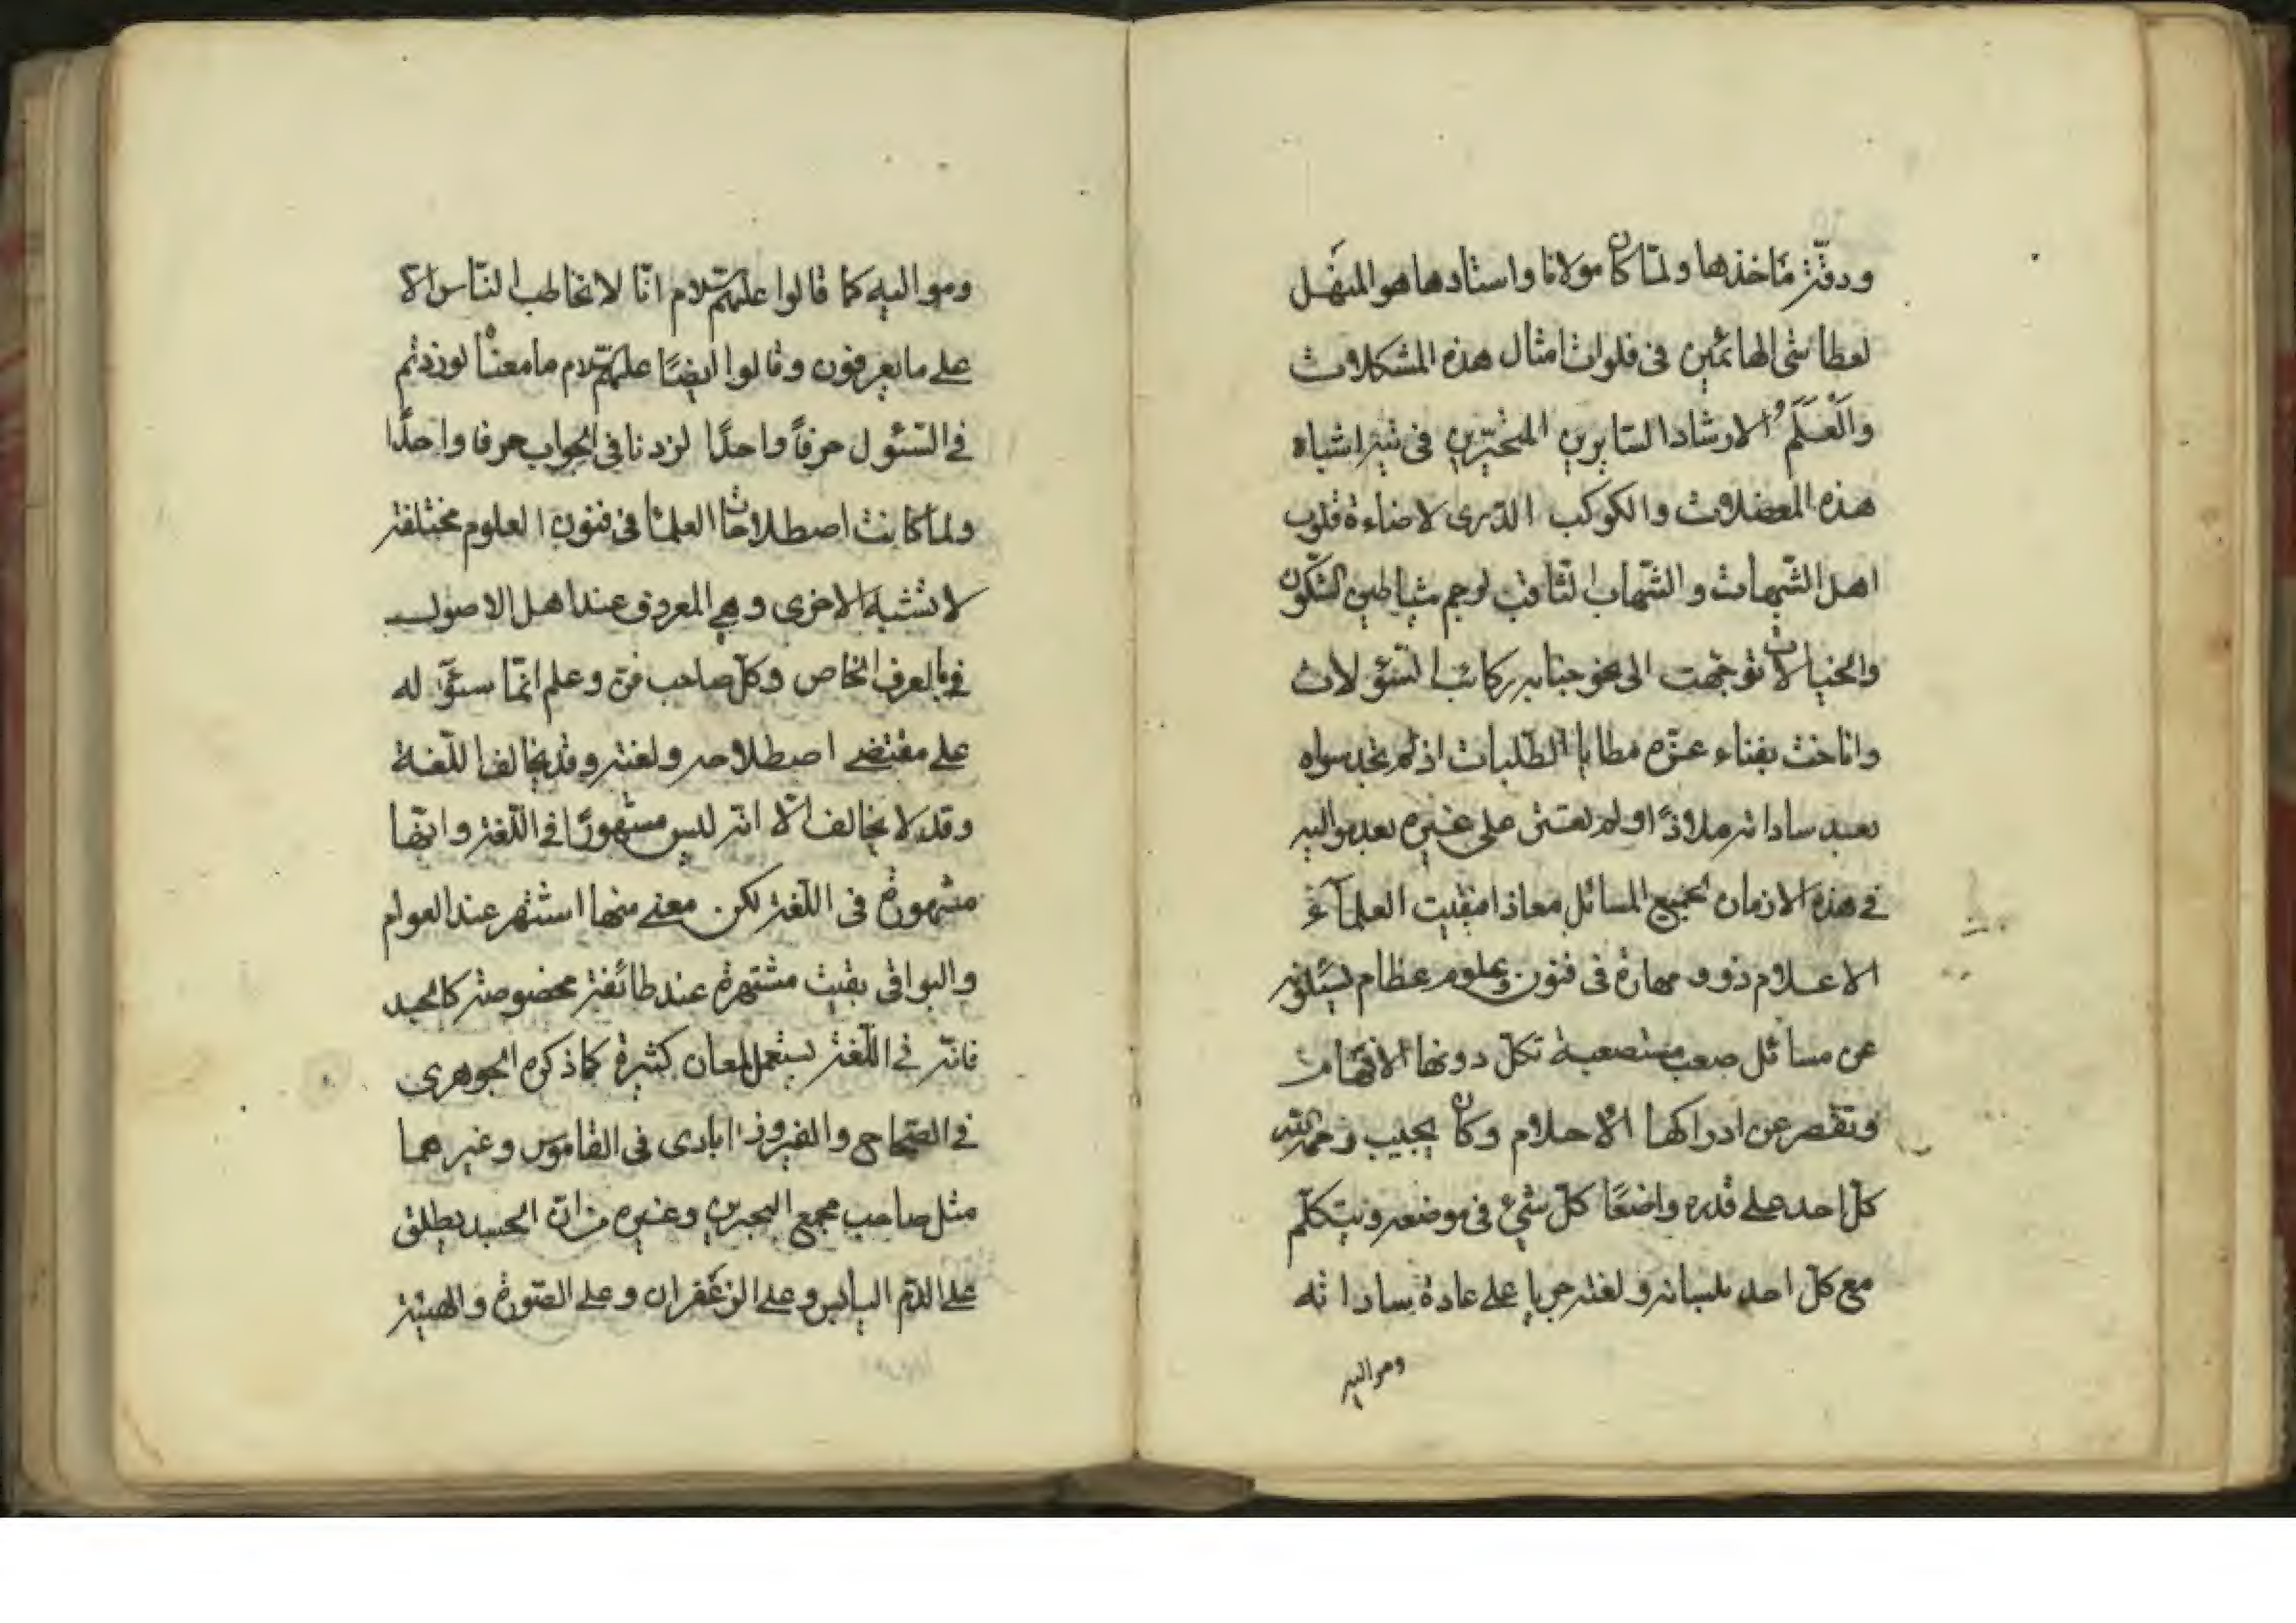 ودقة مأخذها ولما كان مولانا واستادها هو المنهل
لعطاشى الهائمين فى فلوات امثال هذه المشكلات
والعَلَم لارشاد السايرين المتحيرين فى تيه اشباه
هذه المعضلات والكوكب الدرى لاضاءة قلوب
اهل الشبهات والشهاب الثاقب لرجم شياطين الشكوك
والخيالات توجهت الى نحو جنابه ركائب السئولات
واناخت بفناء عزه مطايا الطلبات اذ لم تجد سواه
بعيد ساداته ملاذا ولم تعثر على غيره بعد مواليه
فى هذه الازمان لجميع المسائل معاذا فبقيت العلمآء
الاعلام ذوو مهارة فى فنون وعلوم عظام يسئلونه
عن مسائل صعب مستصعبة تكل دونها الافهام
وتقصر عن ادراكها الاحلام وكان يجيب رحمه الله
كل احد على قدره واضعًا كل شئ فى موضعه ويتكلم
مع كل احد بلسانه ولغته جريا على عادة ساداته
ومواليه
ومواليه كما قالوا عليهم السلام انّا لا نخاطب الناس الا
على ما يعرفون وقالوا ايضًا عليهم السلام ما معناه لو زدتم
فى السئول حرفًا واحدًا لزدنا فى الجواب حرفا واحدًا
ولما كانت اصطلاحات العلما فى فنون العلوم مختلفة
لا تشتبه الاخرى وهى المعروف عند اهل الاصول
فى بالعرف الخاص وكل صاحب فن وعلم انما سئوله
على مقتضى اصطلاحه ولغته وقد يخالف اللغة
وقد لا يخالف الّا انه ليس مشهورًا فى اللغة وانها
مشهورة فى اللغة لكن معنى منها اشتهر عند العوام
والبواقى بقيت مشتهرة عند طائفة مخصوصة كالجسد
فانه فى اللغة يستعمل لمعان كثيرة كما ذكره الجوهرى
فى الصحاح والفيروزابادى فى القاموس وغيرهما
مثل صاحب مجمع البحرين وغيره من ان الجسد يطلق
على الدم اليابس وعلى الزعفران وعلى الصورة والهيئة